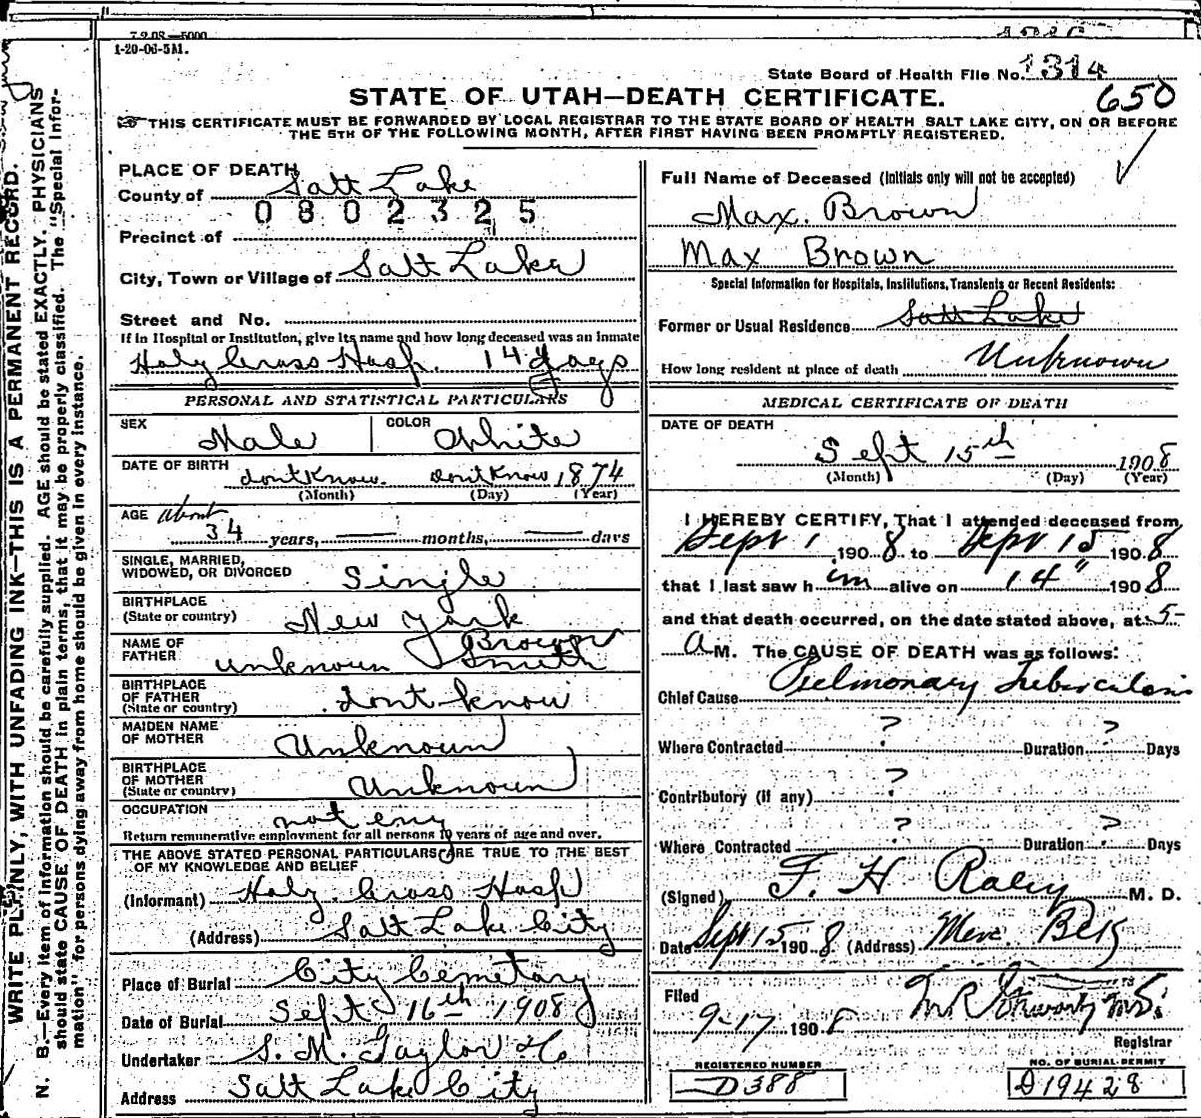 7.2.08—5000
1-20-06-5M.
State Board of Health File No. 1314
650
STATE OF UTAH—DEATH CERTIFICATE.
THIS CERTIFICATE MUST BE FORWARDED BY LOCAL REGISTRAR TO THE STATE BOARD OF HEALTH SALT LAKE CITY, ON OR BEFORE
THE 5TH OF THE FOLLOWING MONTH, AFTER FIRST HAVING BEEN PROMPTLY REGISTERED.
WRITE PLAINLY, WITH UNFADING INK—THIS IS A PERMANENT RECORD.
N. B.—Every item of information should be carefully supplied. AGE should be stated EXACTLY. PHYSICIANS
should state CAUSE OF DEATH in plain terms, that it may be properly classified. The "Special Infor-
mation" for persons dying away from home should be given in every instance.
PLACE OF DEATH
County of Salt Lake
0802325
Precinct of
City, Town or Village of Salt Lake
Street and No.
If in Hospital or Institution, give its name and how long deceased was an inmate
Holy Cross Hosp. 14 days
PERSONAL AND STATISTICAL PARTICULARS
SEX Male COLOR White
DATE OF BIRTH dont Know. dont Know 1874
(Month) (Day) (Year)
AGE about
34 years, — months, — days
SINGLE, MARRIED,
WIDOWED, OR DIVORCED Single
BIRTHPLACE
(State or country) New York
NAME OF
FATHER unknown Brown
Smith
BIRTHPLACE
OF FATHER
(State or country) dont know
MAIDEN NAME
OF MOTHER Unknown
BIRTHPLACE
OF MOTHER
(State or country) Unknown
OCCUPATION not any
Return remunerative employment for all persons 10 years of age and over.
THE ABOVE STATED PERSONAL PARTICULARS ARE TRUE TO THE BEST
OF MY KNOWLEDGE AND BELIEF
(Informant) Holy Cross Hosp
(Address) Salt Lake City
Place of Burial City Cemetary
Date of Burial Sept 16th 1908
Undertaker S. M. Taylor & Co
Address Salt Lake City
Full Name of Deceased (Initials only will not be accepted)
Max. Brown
Max Brown
Special Information for Hospitals, Institutions, Transients or Recent Residents:
Former or Usual Residence Salt Lake
How long resident at place of death Unknown
MEDICAL CERTIFICATE OF DEATH
DATE OF DEATH
Sept 15th 1908
(Month) (Day) (Year)
I HEREBY CERTIFY, That I attended deceased from
Sept 1 1908 to Sept 15 1908
that I last saw him alive on 14" 1908
and that death occurred, on the date stated above, at 5
A M. The CAUSE OF DEATH was as follows:
Chief Cause Pulmonary Tuberculosis
Where Contracted ? Duration ? Days
Contributory (if any) ?
Where Contracted ? Duration ? Days
(Signed) F. H. Raley M. D.
Date Sept 15 1908 (Address)
Filed
9-17 1908
Registrar
REGISTERED NUMBER
D388
NO. OF BURIAL PERMIT
D19428